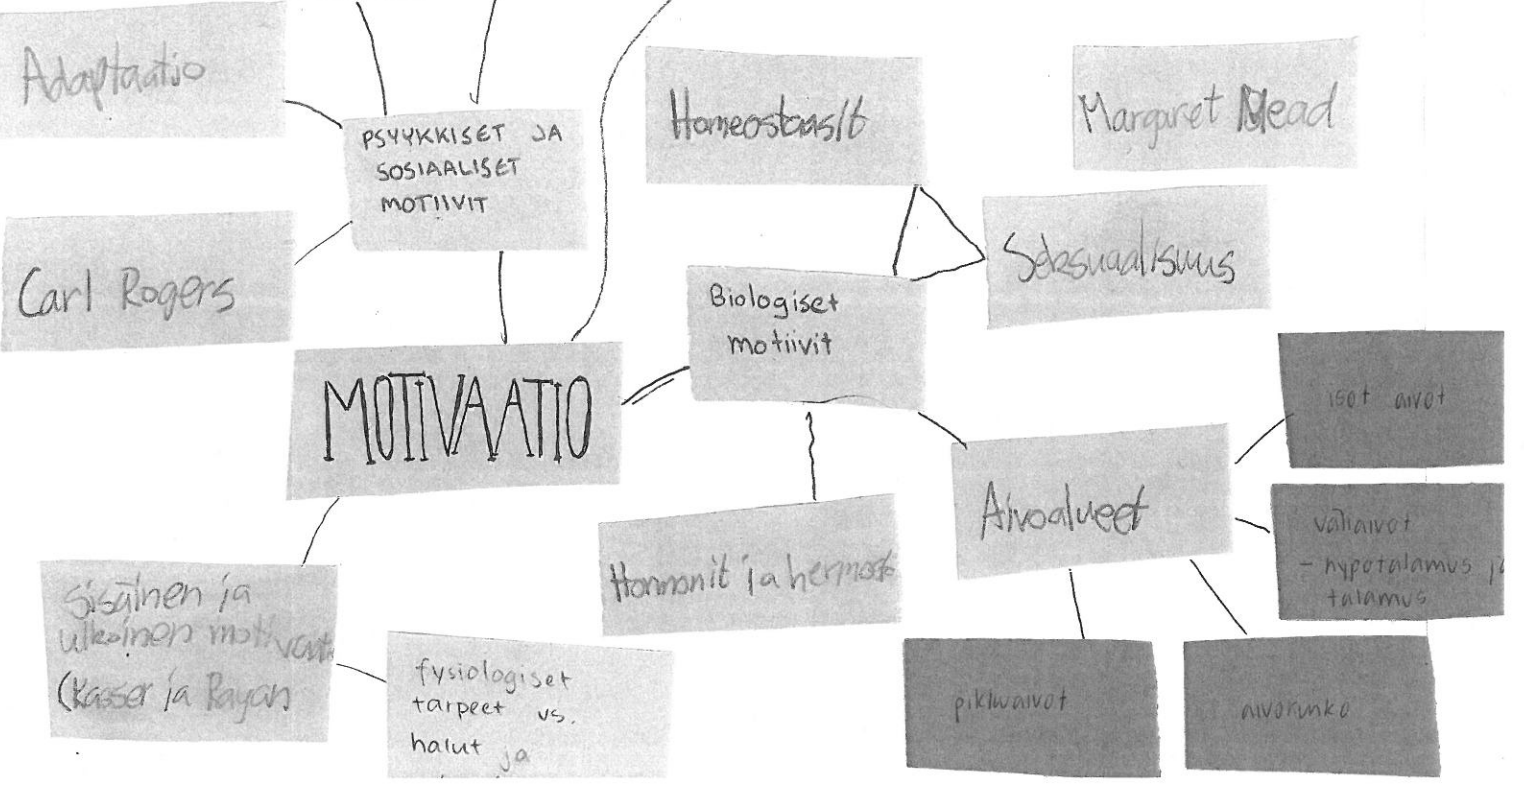 Adaptaatio
PSYYKKISET JA
SOSIAALISET
MOTIIVIT
Homeostaasit
Margaret Mead
Carl Rogers
Seksuaalisuus
Biologiset
motiivit
MOTIVAATIO
isot aivot
Aivoalueet
väliaivot
- hypotalamus ja
talamus
Hormonit ja hermosto
Sisäinen ja
ulkoinen motivaatio
(Kasser ja Rayan
fysiologiset
tarpeet vs.
halut ja
pikkuaivot
aivorunko